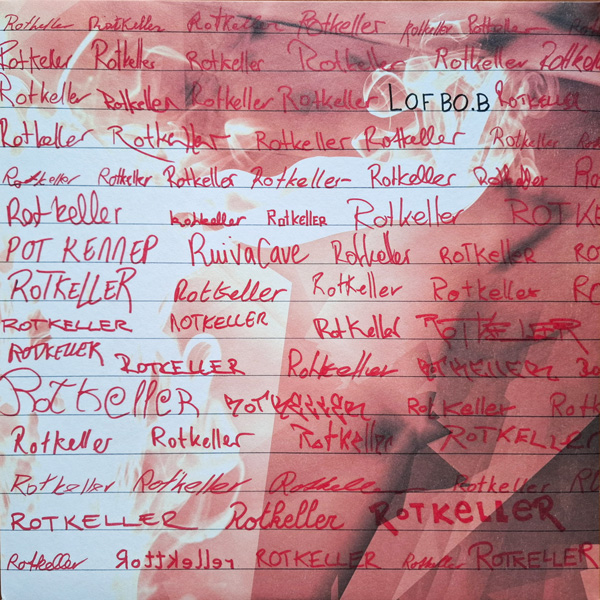 Rotkeller Rotkeller Rotkeller Rotkeller Rotkeller
Rotkeller Rotkeller Rotkeller Rotkeller Rotkeller
Rotkeller Rotkeller Rotkeller Rotkeller LOFBO.B ROTKELLER
Rotkeller Rotkeller Rotkeller Rotkeller Rotkeller
Rotkeller Rotkeller Rotkeller Rotkeller- Rotkeller Rotkeller
Rotkeller Rotkeller ROTKELLER Rotkeller ROTKE
РОТ КЕЛЛЕР RuivaCave Rotkeller ROTKELLER RO
ROTKELLER Rotkeller Rotkeller Rotkeller RO
ROTKELLER ROTKELLER Rotkeller ROTKELLER
ROTKELLER ROTKELLER Rotkeller ROTKELLER
RotkelleR ROTKELLER Rotkeller Rotk
Rotkeller Rotkeller Rotkeller ROTKELLER
Rotkeller Rotkeller Rotkeller Rotkeller
ROTKELLER Rotkeller ROTKELLER
Rotkeller Rottkeller ROTKELLER Rotkeller ROTKELLER